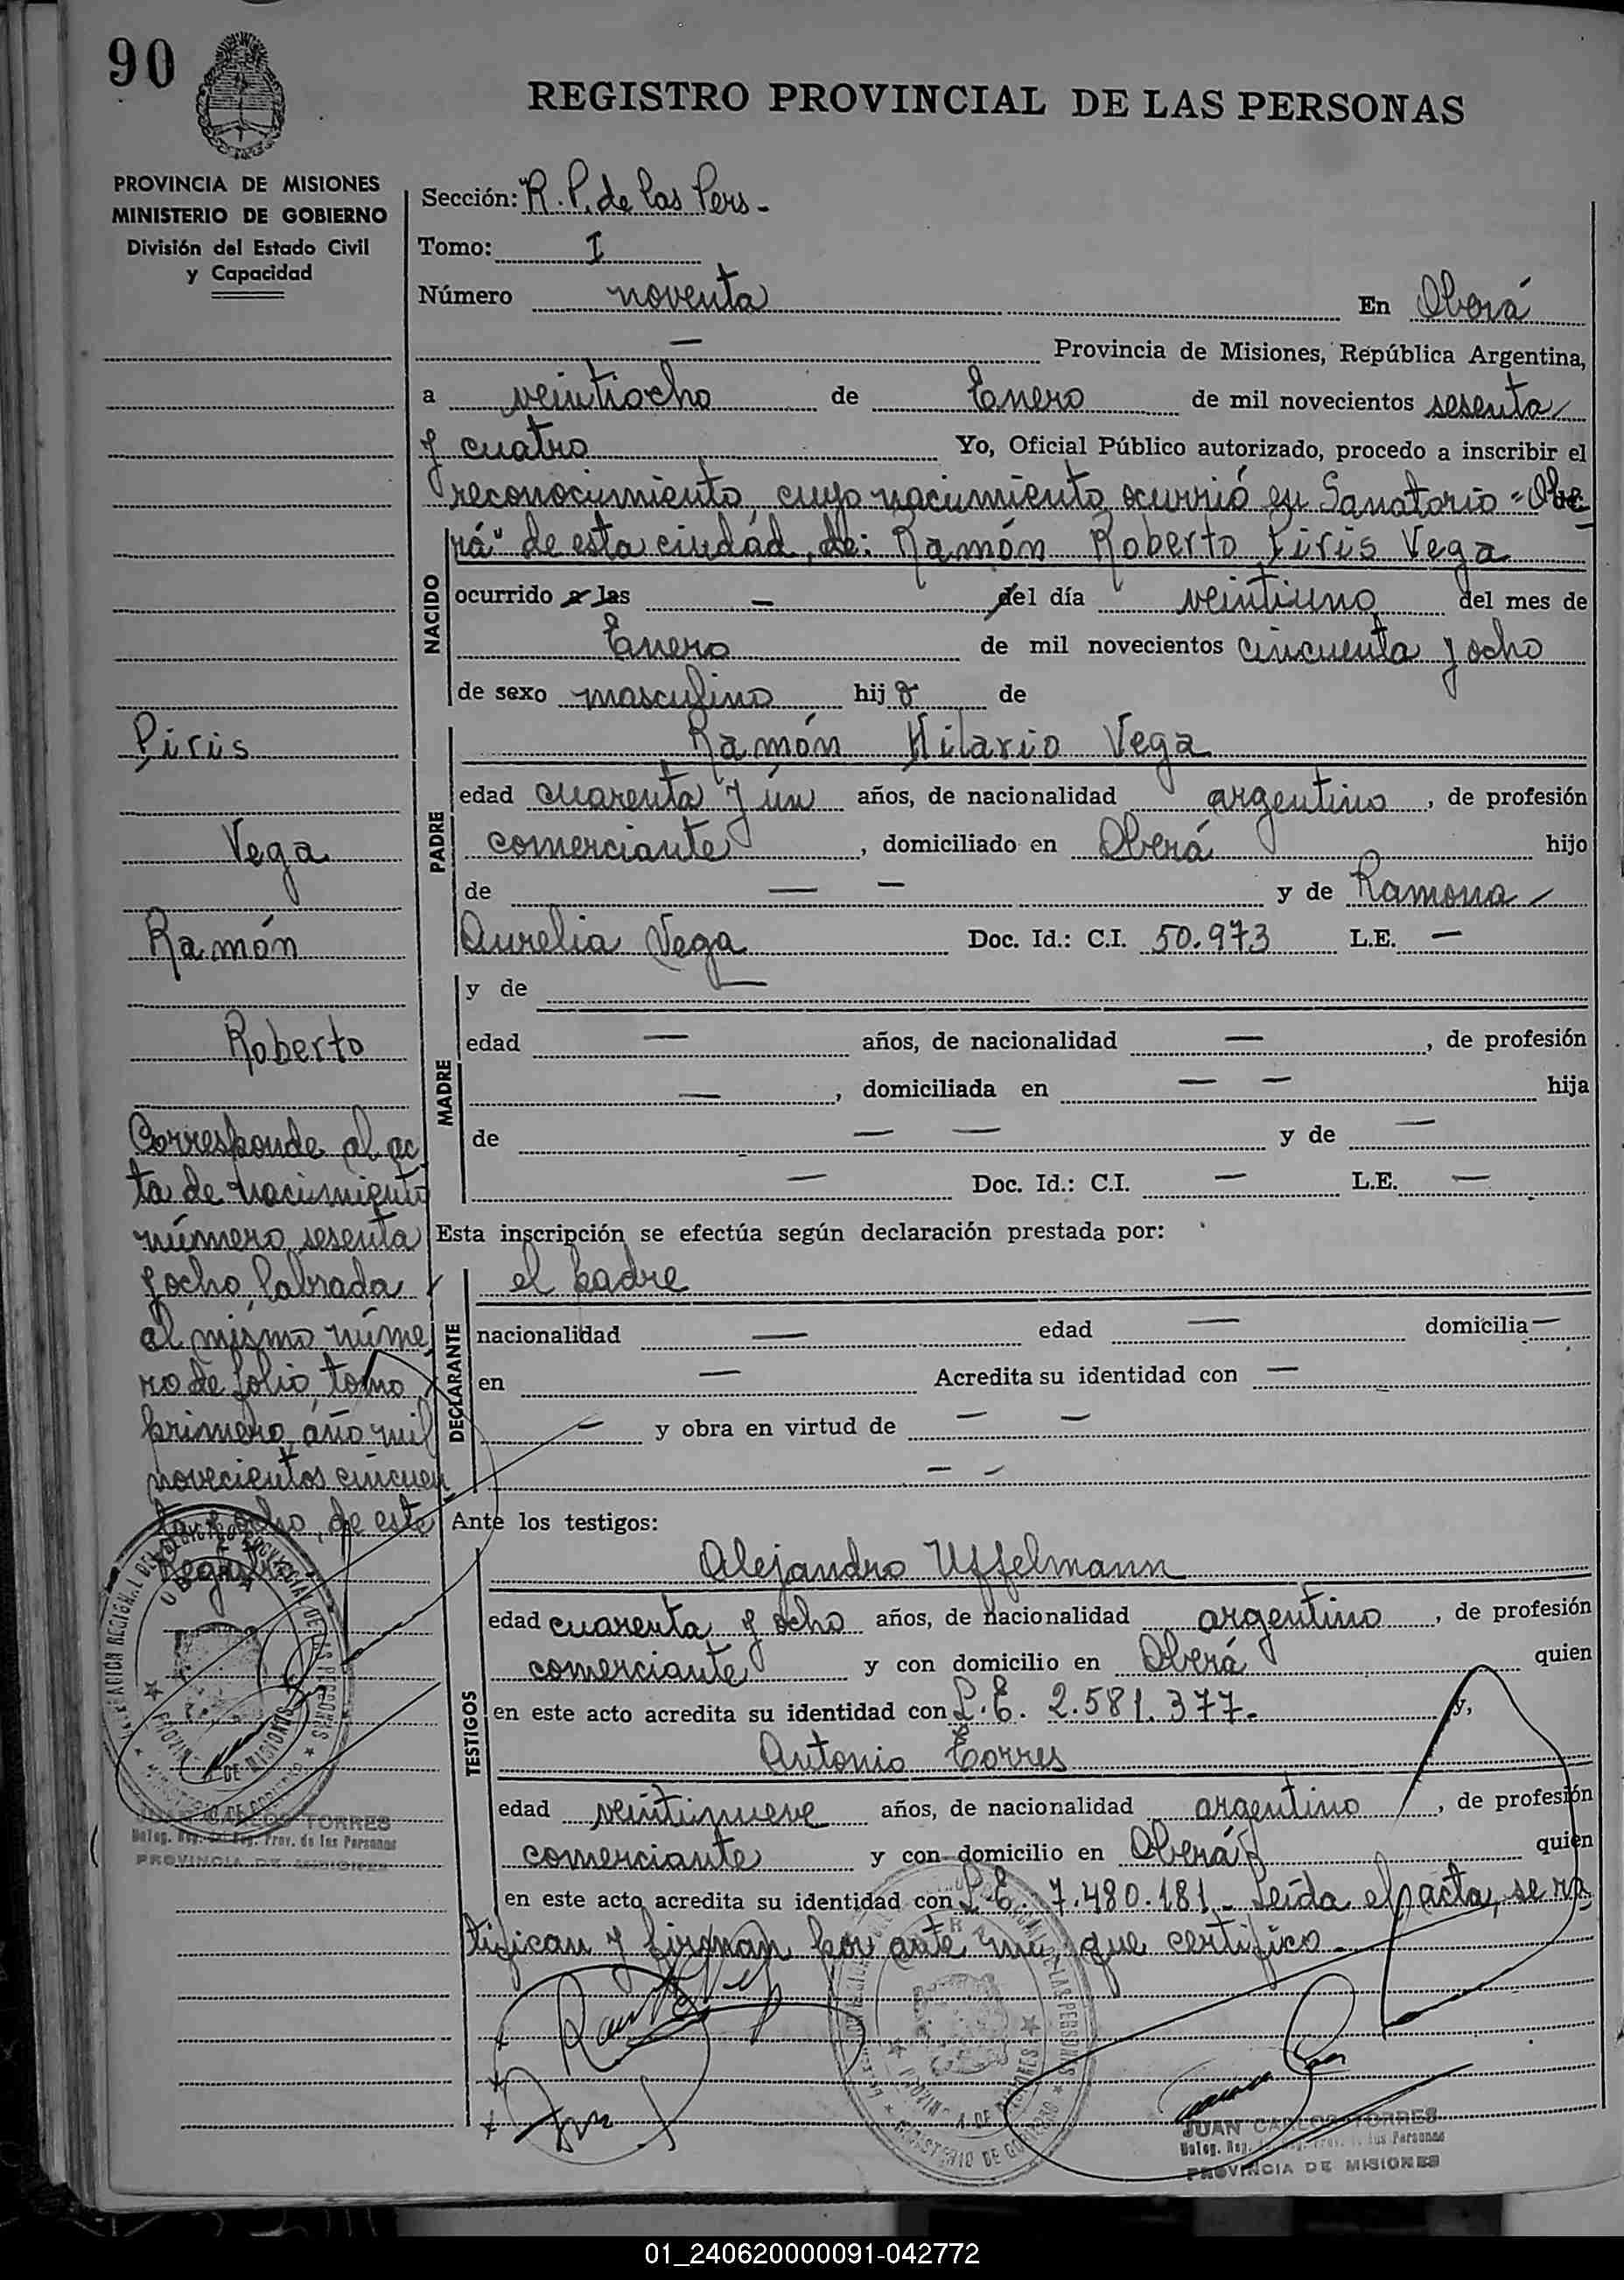 90
REGISTRO PROVINCIAL DE LAS PERSONAS
PROVINCIA DE MISIONES
MINISTERIO DE GOBIERNO
División del Estado Civil
y Capacidad
Sección: R.P. de las Pers-
Tomo: I
Número noventa En Oberá
— Provincia de Misiones, República Argentina,
a veintiocho de Enero de mil novecientos sesenta
y cuatro Yo, Oficial Público autorizado, procedo a inscribir el
reconocimiento, cuyo nacimiento ocurrió en Sanatorio "Obe
rá" de esta ciudad, de: Ramón Roberto Piris Vega
NACIDO
ocurrido a las — del día veintiuno del mes de
Enero de mil novecientos cincuenta y ocho
de sexo masculino hijo de
PADRE
Ramón Hilario Vega
edad cuarenta y un años, de nacionalidad argentino, de profesión
comerciante, domiciliado en Oberá hijo
de — — y de Ramona
Aurelia Vega Doc. Id.: C.I. 50.973 L.E. —
MADRE
y de —
edad — años, de nacionalidad —, de profesión
—, domiciliada en — — hija
de — — y de —
— Doc. Id.: C.I. — L.E. —
Esta inscripción se efectúa según declaración prestada por:
DECLARANTE
el padre
nacionalidad — edad — domicilia—
en — Acredita su identidad con —
— y obra en virtud de — —
— —
Ante los testigos:
TESTIGOS
Alejandro Uffelmann
edad cuarenta y ocho años, de nacionalidad argentino, de profesión
comerciante y con domicilio en Oberá quien
en este acto acredita su identidad con L.E. 2.581.377.- y,
Antonio Torres
edad veintinueve años, de nacionalidad argentino, de profesión
comerciante y con domicilio en Oberá quien
en este acto acredita su identidad con L.E. 7.480.181.- Leída el acta, se ra
tifican y firman por ante mí, que certifico.-
JUAN CARLOS TORRES
Deleg. Reg. del Reg. Prov. de las Personas
PROVINCIA DE MISIONES
Piris
Vega
Ramón
Roberto
Corresponde al ac
ta de nacimiento
número sesenta
y ocho, labrada
al mismo núme
ro de folio, tomo
primero, año mil
novecientos cincuen
ta y ocho, de este
Registro
OBERA
PROVINCIA DE MISIONES
MINISTERIO DE GOBIERNO
JUAN CARLOS TORRES
Deleg. Reg. del Reg. Prov. de las Personas
PROVINCIA DE MISIONES
01_240620000091-042772